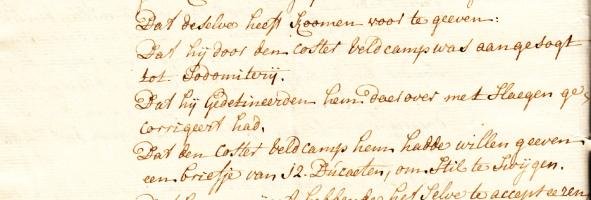 Dat deselve heeft koomen voor te geeven:
Dat hij door den coster Veldcamp was aangesogt
tot Sodomiterij.
Dat hij Gedetineerden hem daerover met slaegen ge
corrigeert had.
Dat den Coster Veldcamp hem hadde willen geeven
een briefje van 12. Ducaeten, om Stil te Swijgen.
hebbende het Selve te accepteeren